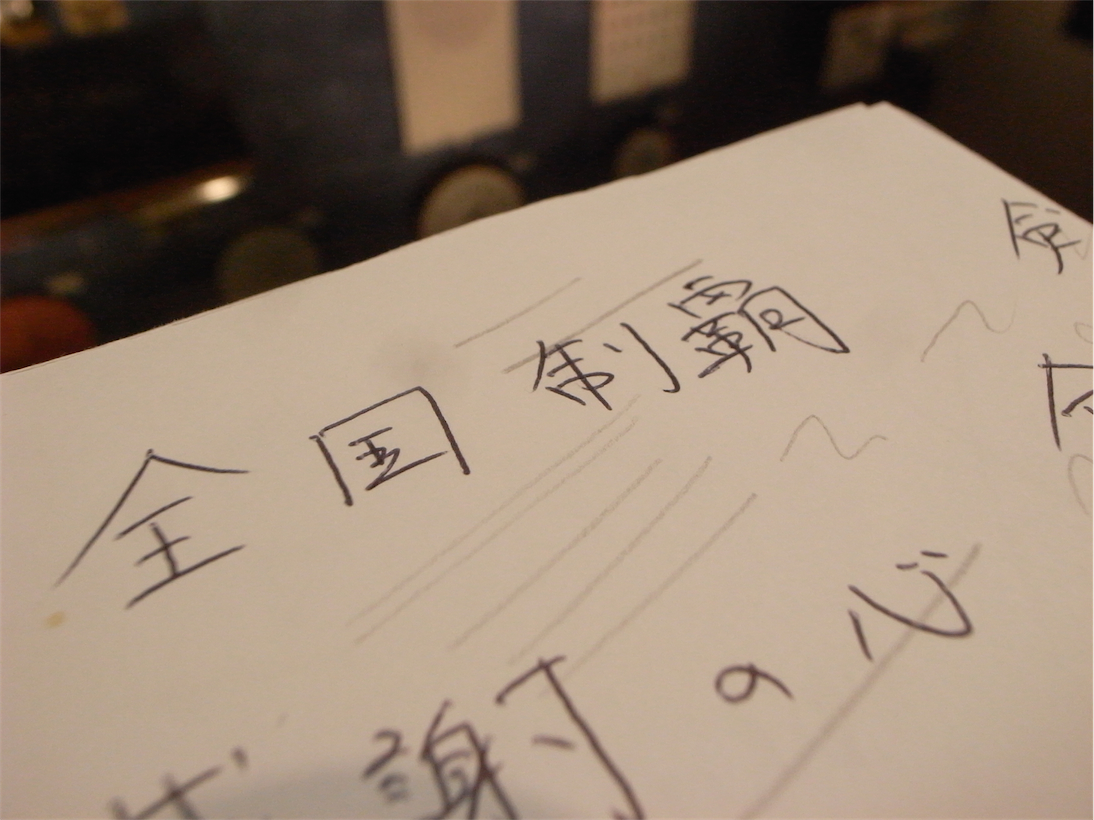 全国制覇
感謝の心